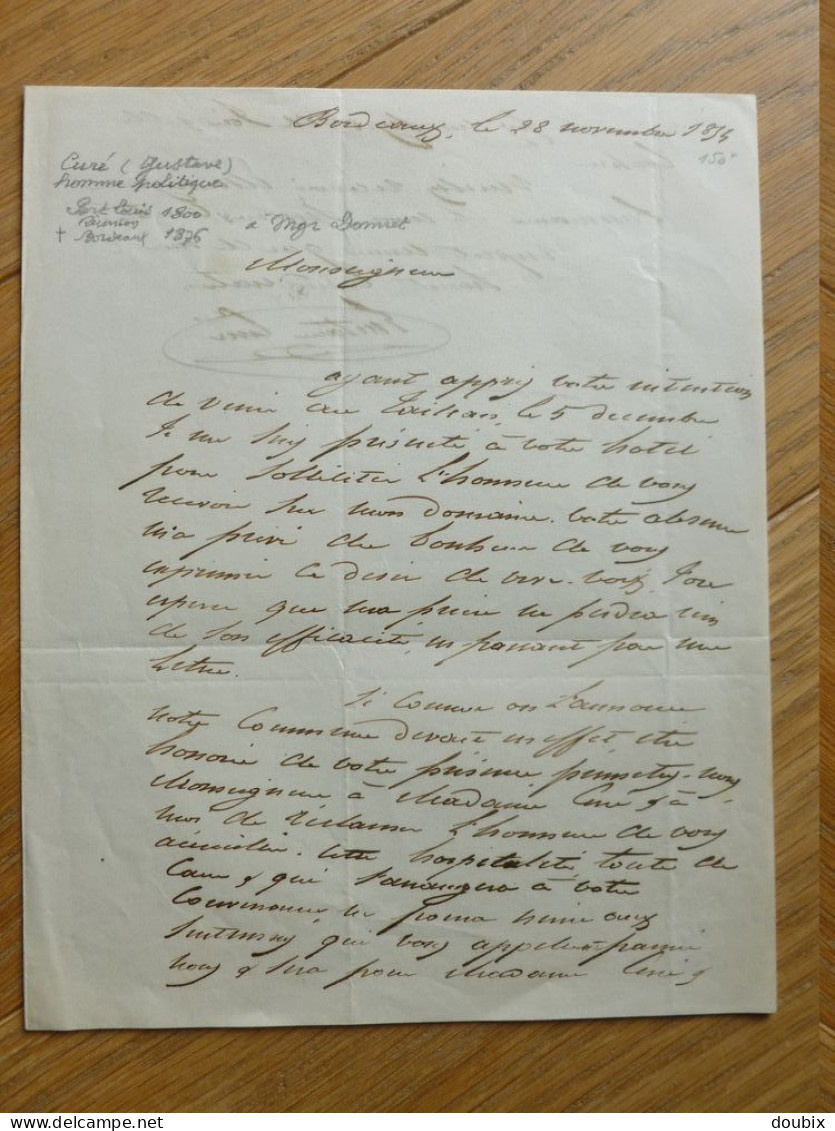 Bordeaux, le 28 novembre 1854
150
Curé (Gustave)
homme politique
Port Louis 1800
Réunion
† Bordeaux 1876
à Mgr Donnet
Monseigneur
ayant appris votre intention
de venir au Taillan, le 5 décembre
Je me suis présenté à votre hotel
pour solliciter l'honneur de vous
recevoir sur mon domaine. Votre absence
m'a privé du bonheur de vous
exprimer ce désir de vive-voix. J'ose
espérer que ma prière ne perdra rien
de son efficacité, en passant par une
Lettre.
Si comme on l'annonce
notre Commune devait en effet être
honorée de votre présence permettez-nous
Monseigneur à Madame Curé & à
moi de réclamer l'honneur de vous
accueillir. Cette hospitalité toute de
Cœur & qui s'arrangera à votre
Convenance ne pourra nuire aux
intérêts qui vous appellent parmi
nous & sera pour Madame Curé &
delcampe.net
doubix